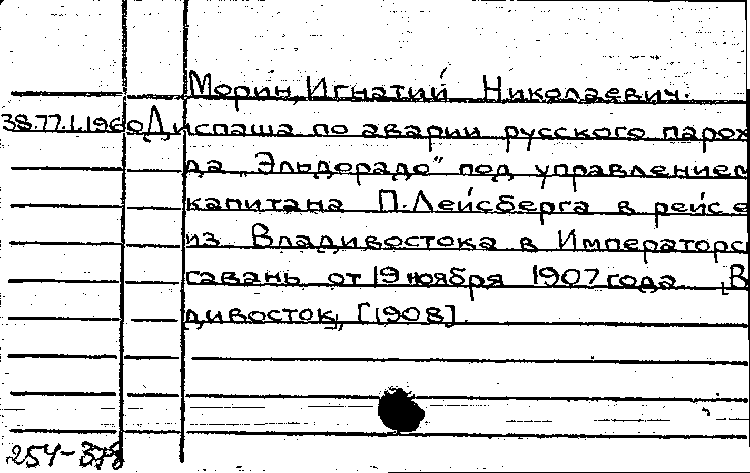 Морин, Игнатий Николаевич.
38.77.1.1960 Диспаша по аварии русского парох
да „Эльдорадо" под управлением
капитана П.Лейсберга в рейсе
из Владивостока в Императорс
гавань от 19 ноября 1907 года [В
дивосток, [1908].
254-378